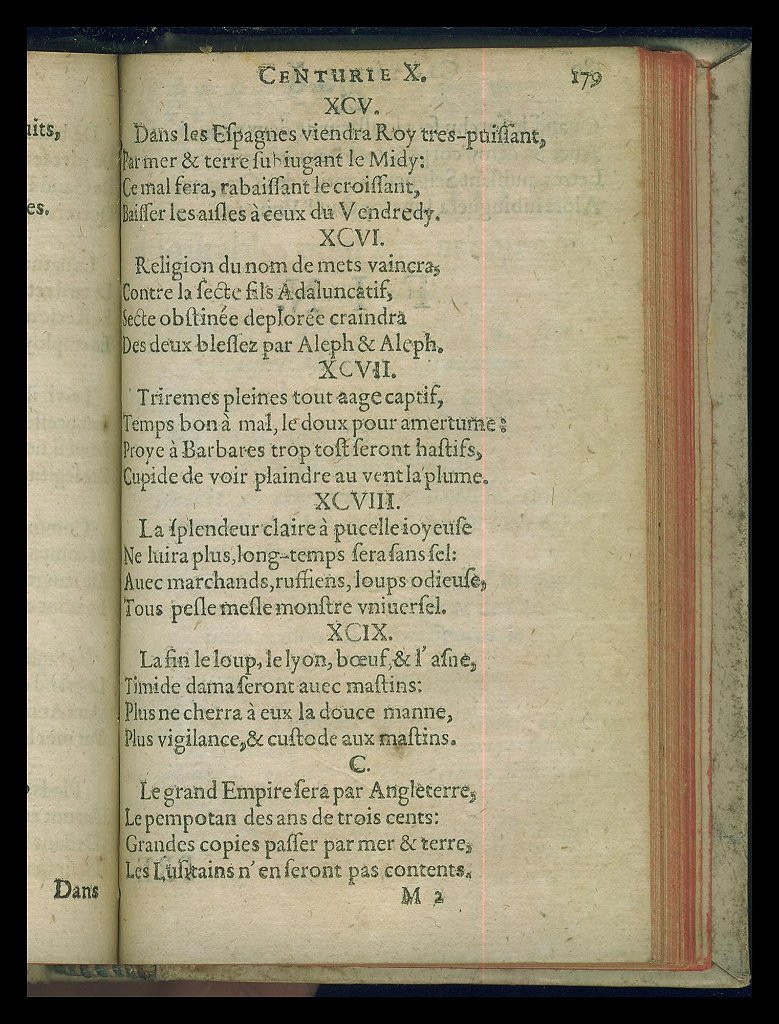 uits,
es.
Dans
CENTURIE X. 179
XCV.
Dans les Eſpagnes viendra Roy tres-puiſſant,
Par mer & terre ſubiugant le Midy:
Ce mal fera, rabaiſſant le croiſſant,
Baiſſer les aiſles à ceux du Vendredy.
XCVI.
Religion du nom de mets vaincra,
Contre la ſecte fils Adaluncatif,
Secte obſtinée deplorée craindra
Des deux bleſſez par Aleph & Aleph.
XCVII.
Triremes pleines tout aage captif,
Temps bon à mal, le doux pour amertume:
Proye à Barbares trop toſt ſeront haſtifs,
Cupide de voir plaindre au vent la plume.
XCVIII.
La ſplendeur claire à pucelle ioyeuſe
Ne luira plus, long-temps ſera ſans ſel:
Auec marchands, ruffiens, loups odieuſe,
Tous peſle meſle monſtre vniuerſel.
XCIX.
La fin le loup, le lyon, bœuf, & l'aſne,
Timide dama ſeront auec maſtins:
Plus ne cherra à eux la douce manne,
Plus vigilance, & cuſtode aux maſtins.
C.
Le grand Empire ſera par Angleterre,
Le pempotan des ans de trois cents:
Grandes copies paſſer par mer & terre,
Les Luſitains n'en ſeront pas contents.
M 2